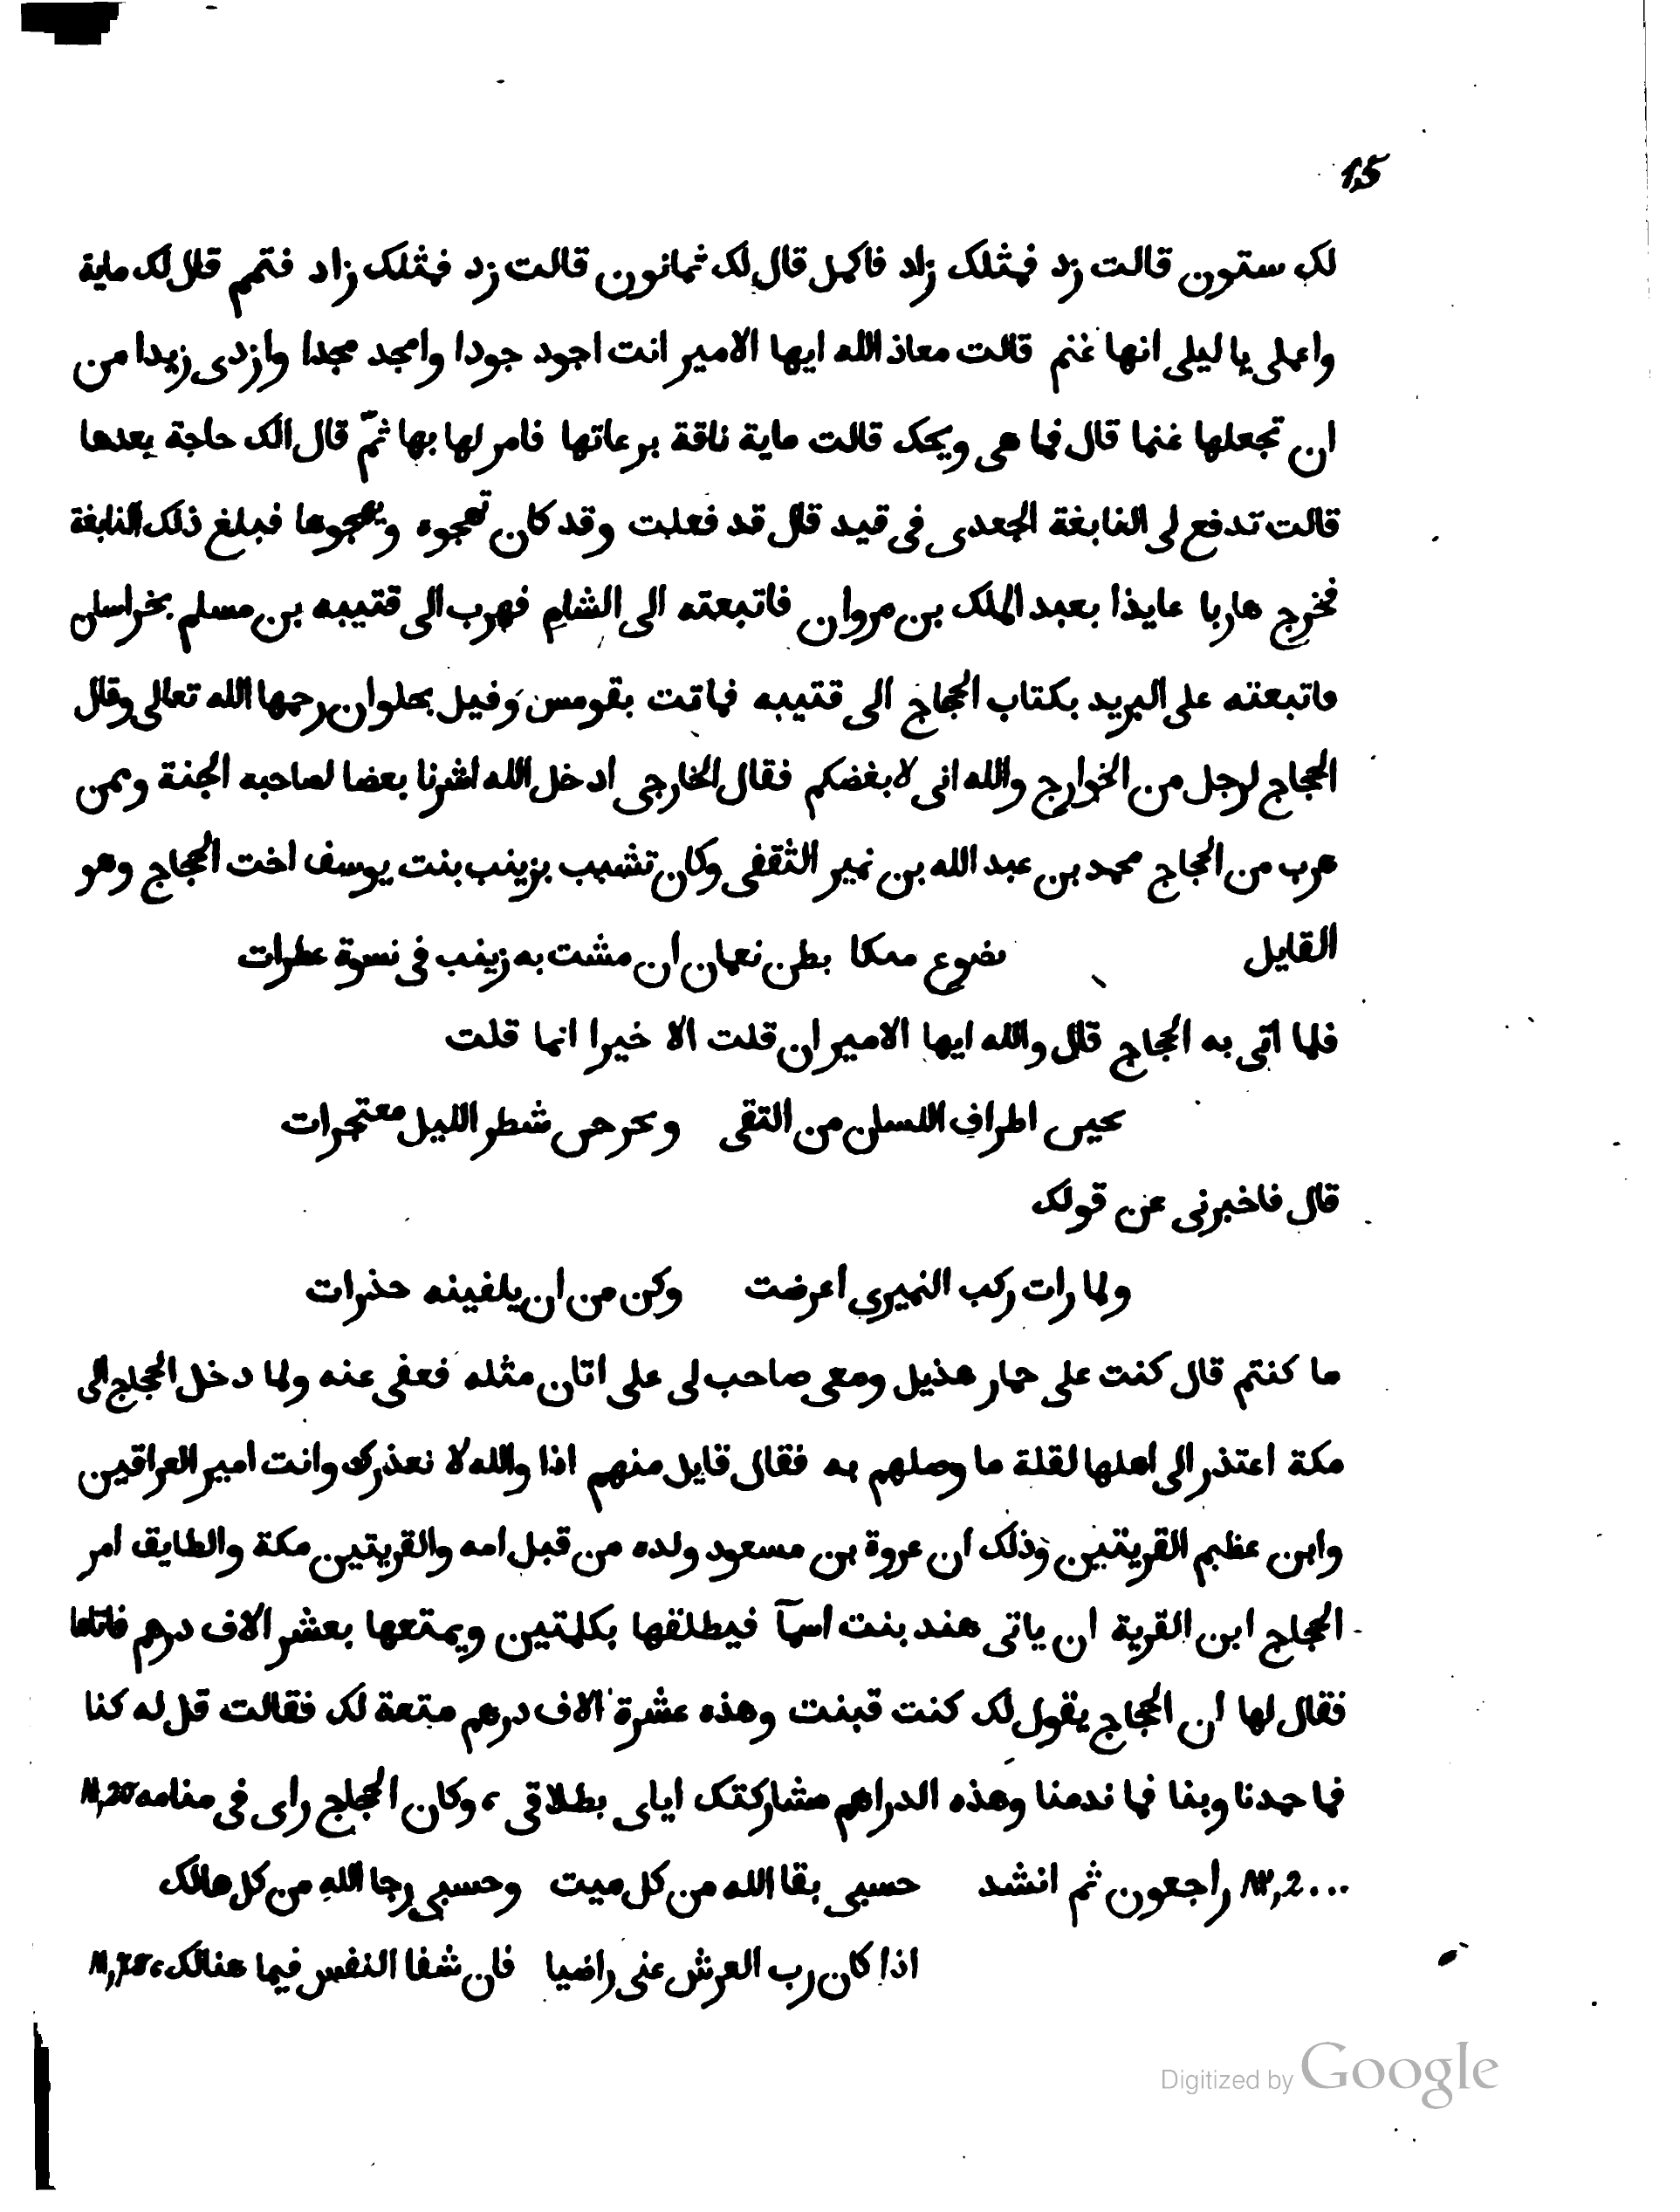 15
لك ستون قالت زد فمثلك زاد فاكمل قال لك ثمانون قالت زد فمثلك زاد فتمم قال لك ماية
واعلمى يا ليلى انها غنم قالت معاذ الله ايها الامير انت اجود جودا وامجد مجدا وازدى زيدا من
ان تجعلها غنما قال فما هى ويحك قالت ماية ناقة برعاتها فامر لها بها ثمّ قال الك حاجة بعدها
قالت تدفع لى النابغة الجعدى فى قيد قال قد فعلت وقد كان تهجوه ويهجوها فبلغ ذلك النابغة
فخرج هاربا عايذا بعبد الملك بن مروان فاتبعته الى الشام فهرب الى قتيبه بن مسلم بخراسان
فاتبعته على البريد بكتاب الحجاج الى قتيبه فماتت بقومس وفيل بحلوان رحمها الله تعالى وقال
الحجاج لرجل من الخوارج والله انى لابغضكم فقال الخارجى ادخل الله اشرنا بعضا لصاحبه الجنة وممن
هرب من الحجاج محمد بن عبد الله بن نمير الثقفى وكان تشبب بزينب بنت يوسف اخت الحجاج وهو
القايل تضوع مسكا بطن نعمان ان مشت به زينب فى نسوة عطرات
فلما اتى به الحجاج قال والله ايها الامير ان قلت الا خيرا انما قلت
اطراف من التقى شطر الليل معتجرات
قال فاخبرنى عن قولك
ولما رات ركب النميرى اعرضت وكن من ان يلفينه حذرات
ما كنتم قال كنت على حمار هذيل ومعى صاحب لى على اتان مثله فعفى عنه ولما دخل الحجاج الى
مكة اعتذر الى اهلها لقلة ما وصلهم به فقال قايل منهم اذا والله لا نعذرك وانت امير العراقين
وابن عظيم القريتين وذلك ان عروة بن مسعود ولده من قبل امه والقريتين مكة والطايف امر
الحجاج ابن القرية ان ياتى هند بنت اسمآ فيطلقها بكلمتين ويمتعها بعشر الاف درهم فاتاها
فقال لها ان الحجاج يقول لك كنت فبنت وهذه عشرة الاف درهم متعة لك فقالت قل له كنا
فما حمدنا وبنا فما ندمنا وهذه الدراهم مشاركتك اياى بطلاقى ، وكان الحجاج راى فى منامه
راجعون ثم انشد حسبى بقا الله من كل ميت وحسبى رجا الله من كل هالك
اذا كان رب العرش عنى راضيا فان شفا النفس فيما هنالك،
Digitized by Google